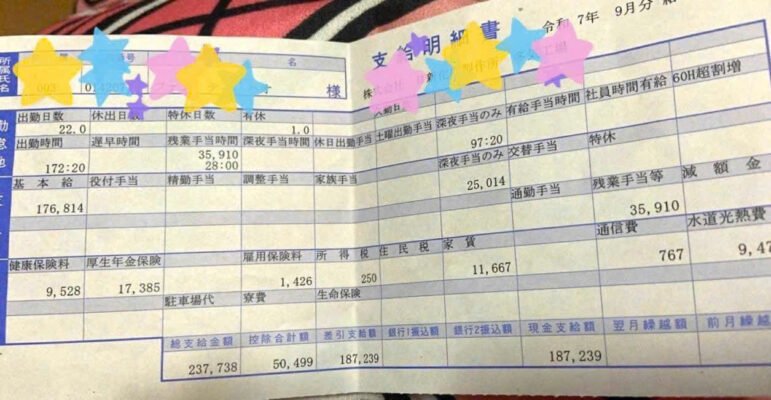 支給明細書 令和 7年 9月分 給
所属氏名 番号 名
003 様 株式会社 製作所 工場
出勤日数 休出日数 特休日数 有休
22.0 1.0
出勤時間 遅早時間 残業手当時間 深夜手当時間 休日出勤手当 土曜出勤手当 深夜手当のみ 有給手当時間 社員時間有給 60H超割増
172:20 35,910 97:20
28:00
基本給 役付手当 精勤手当 調整手当 家族手当 深夜手当のみ 交替手当 特休
176,814 25,014
通勤手当 残業手当等 減額金
35,910
健康保険料 厚生年金保険 雇用保険料 所得税 住民税 家賃 通信費 水道光熱費
9,528 17,385 1,426 250 11,667 767 9,47
駐車場代 寮費 生命保険
総支給金額 控除合計額 差引支給額 銀行1振込額 銀行2振込額 現金支給額 翌月繰越額 前月繰越
237,738 50,499 187,239 187,239